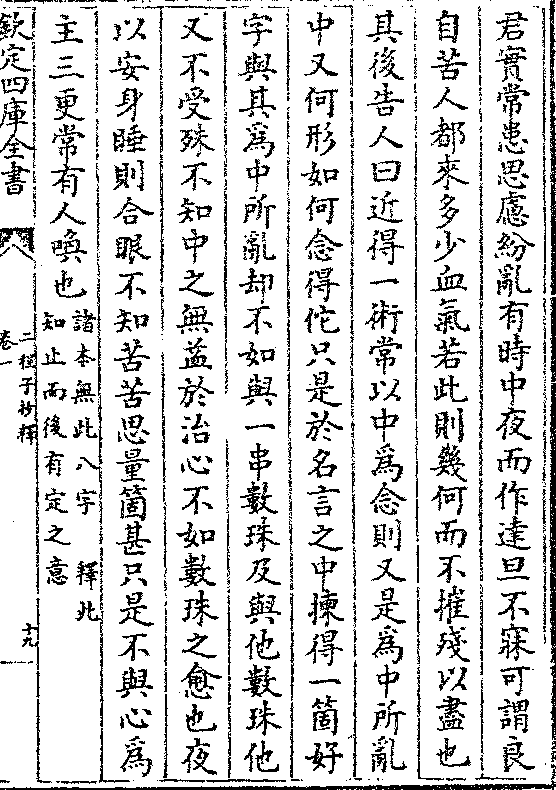 君實常患思慮紛亂有時中夜而作達旦不寐可謂良
自苦人都來多少血氣若此則幾何而不摧殘以盡也
其後告人曰近得一術常以中爲念則又是爲中所亂
中又何形如何念得佗只是於名言之中揀得一箇好
字與其爲中所亂却不如與一串數珠及與他數珠他
又不受殊不知中之無益於治心不如數珠之愈也夜
以安身睡則合眼不知苦苦思量箇甚只是不與心爲
主三更常有人喚也諸本無此八字 釋此
知止而後有定之意
欽定四庫全書
二程子抄釋
卷一
十九